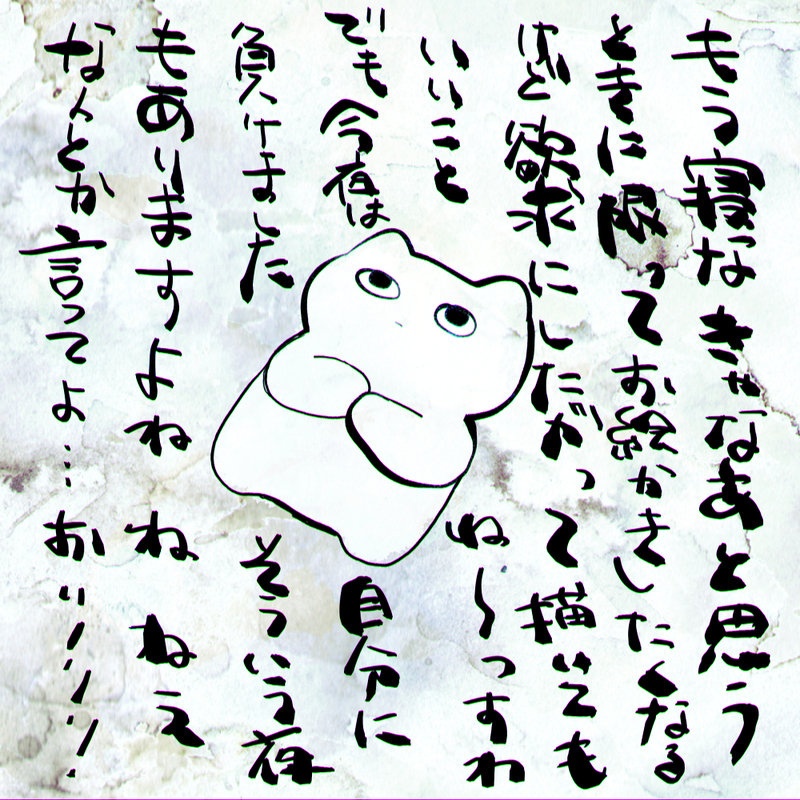 もう寝なきゃなあと思う
ときに限ってお絵かきしたくなる
けど欲求にしたがって描いても
いいこと ね〜っすわ
でも今夜は 自分に
負けました そういう夜
もありますよね ね ねえ
なんとか言ってよ… おい